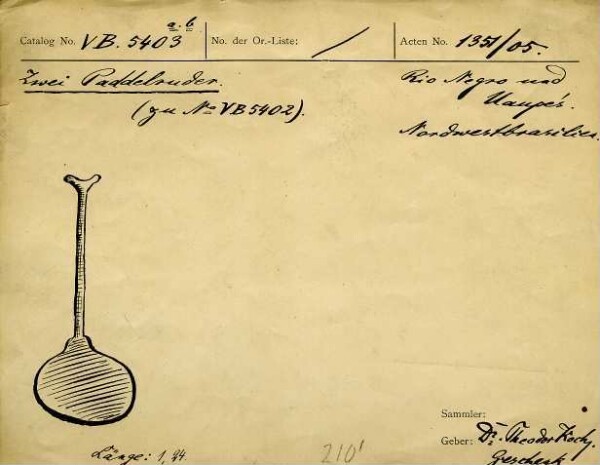 Catalog No. VB. 5403 a. b No. der Or.-Liste: / Acten No. 1351/05.
Zwei Paddelruder.
(zu No VB 5402).
Rio Negro und
Uaupés.
Nordwestbrasilien.
Sammler:
Geber: Dr. Theodor Koch,
Geschenk
Länge: 1,24.
210'